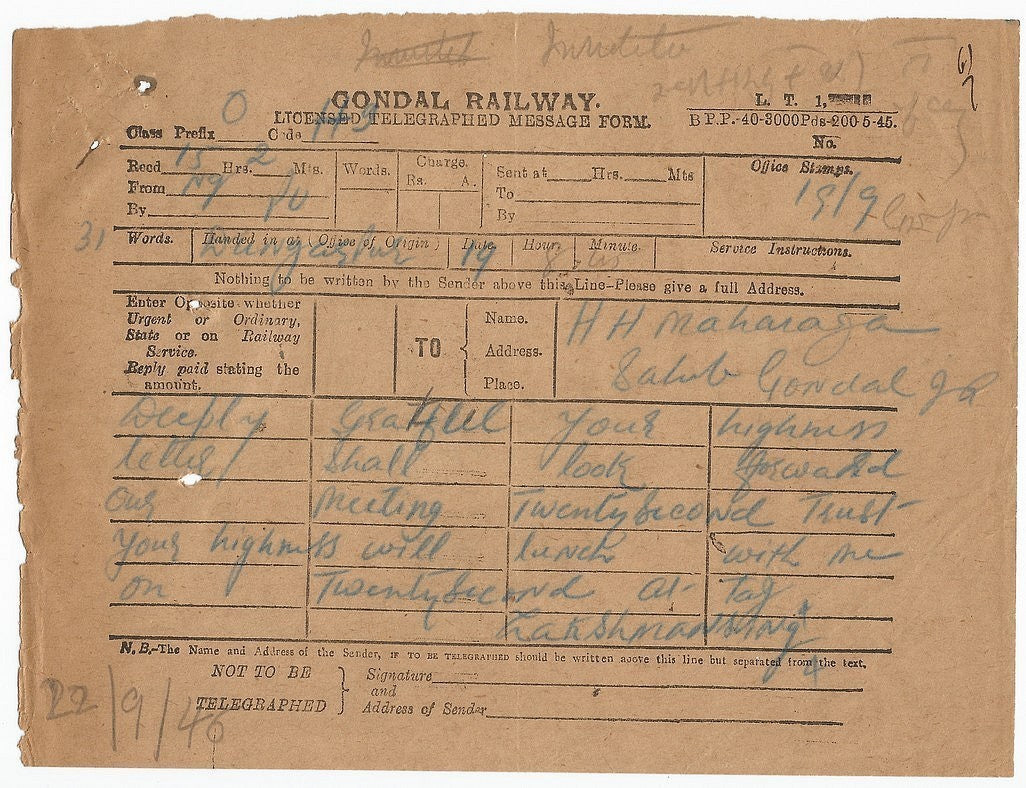 GONDAL RAILWAY.
LICENSED TELEGRAPHED MESSAGE FORM.
L. T. 1,
B P.P.-40-3000Pds-200-5-45.
Class Prefix O Code 113
No.
Recd 15 Hrs. 2 Mts.
From
By
Words.
Charge.
Rs. A.
Sent at Hrs. Mts
To
By
Office Stamps.
19/9
31
Words. Handed in at (Office of Origin) Date Hour Minute. Service Instructions.
Dungarpur 19 8
Nothing to be written by the Sender above this Line-Please give a full Address.
Enter Opposite whether
Urgent or Ordinary,
State or on Railway
Service.
Reply paid stating the
amount.
TO
Name.
Address.
Place.
H H Maharaja
Sahib Gondal
Deeply Grateful Your highness
letter Shall look forward
our Meeting Twentysecond Trust
Your highness will lunch with me
on Twentysecond at Taj
Lakshmansing
N. B.-The Name and Address of the Sender, IF TO BE TELEGRAPHED should be written above this line but separated from the text.
NOT TO BE
TELEGRAPHED
Signature
and
Address of Sender
22/9/46